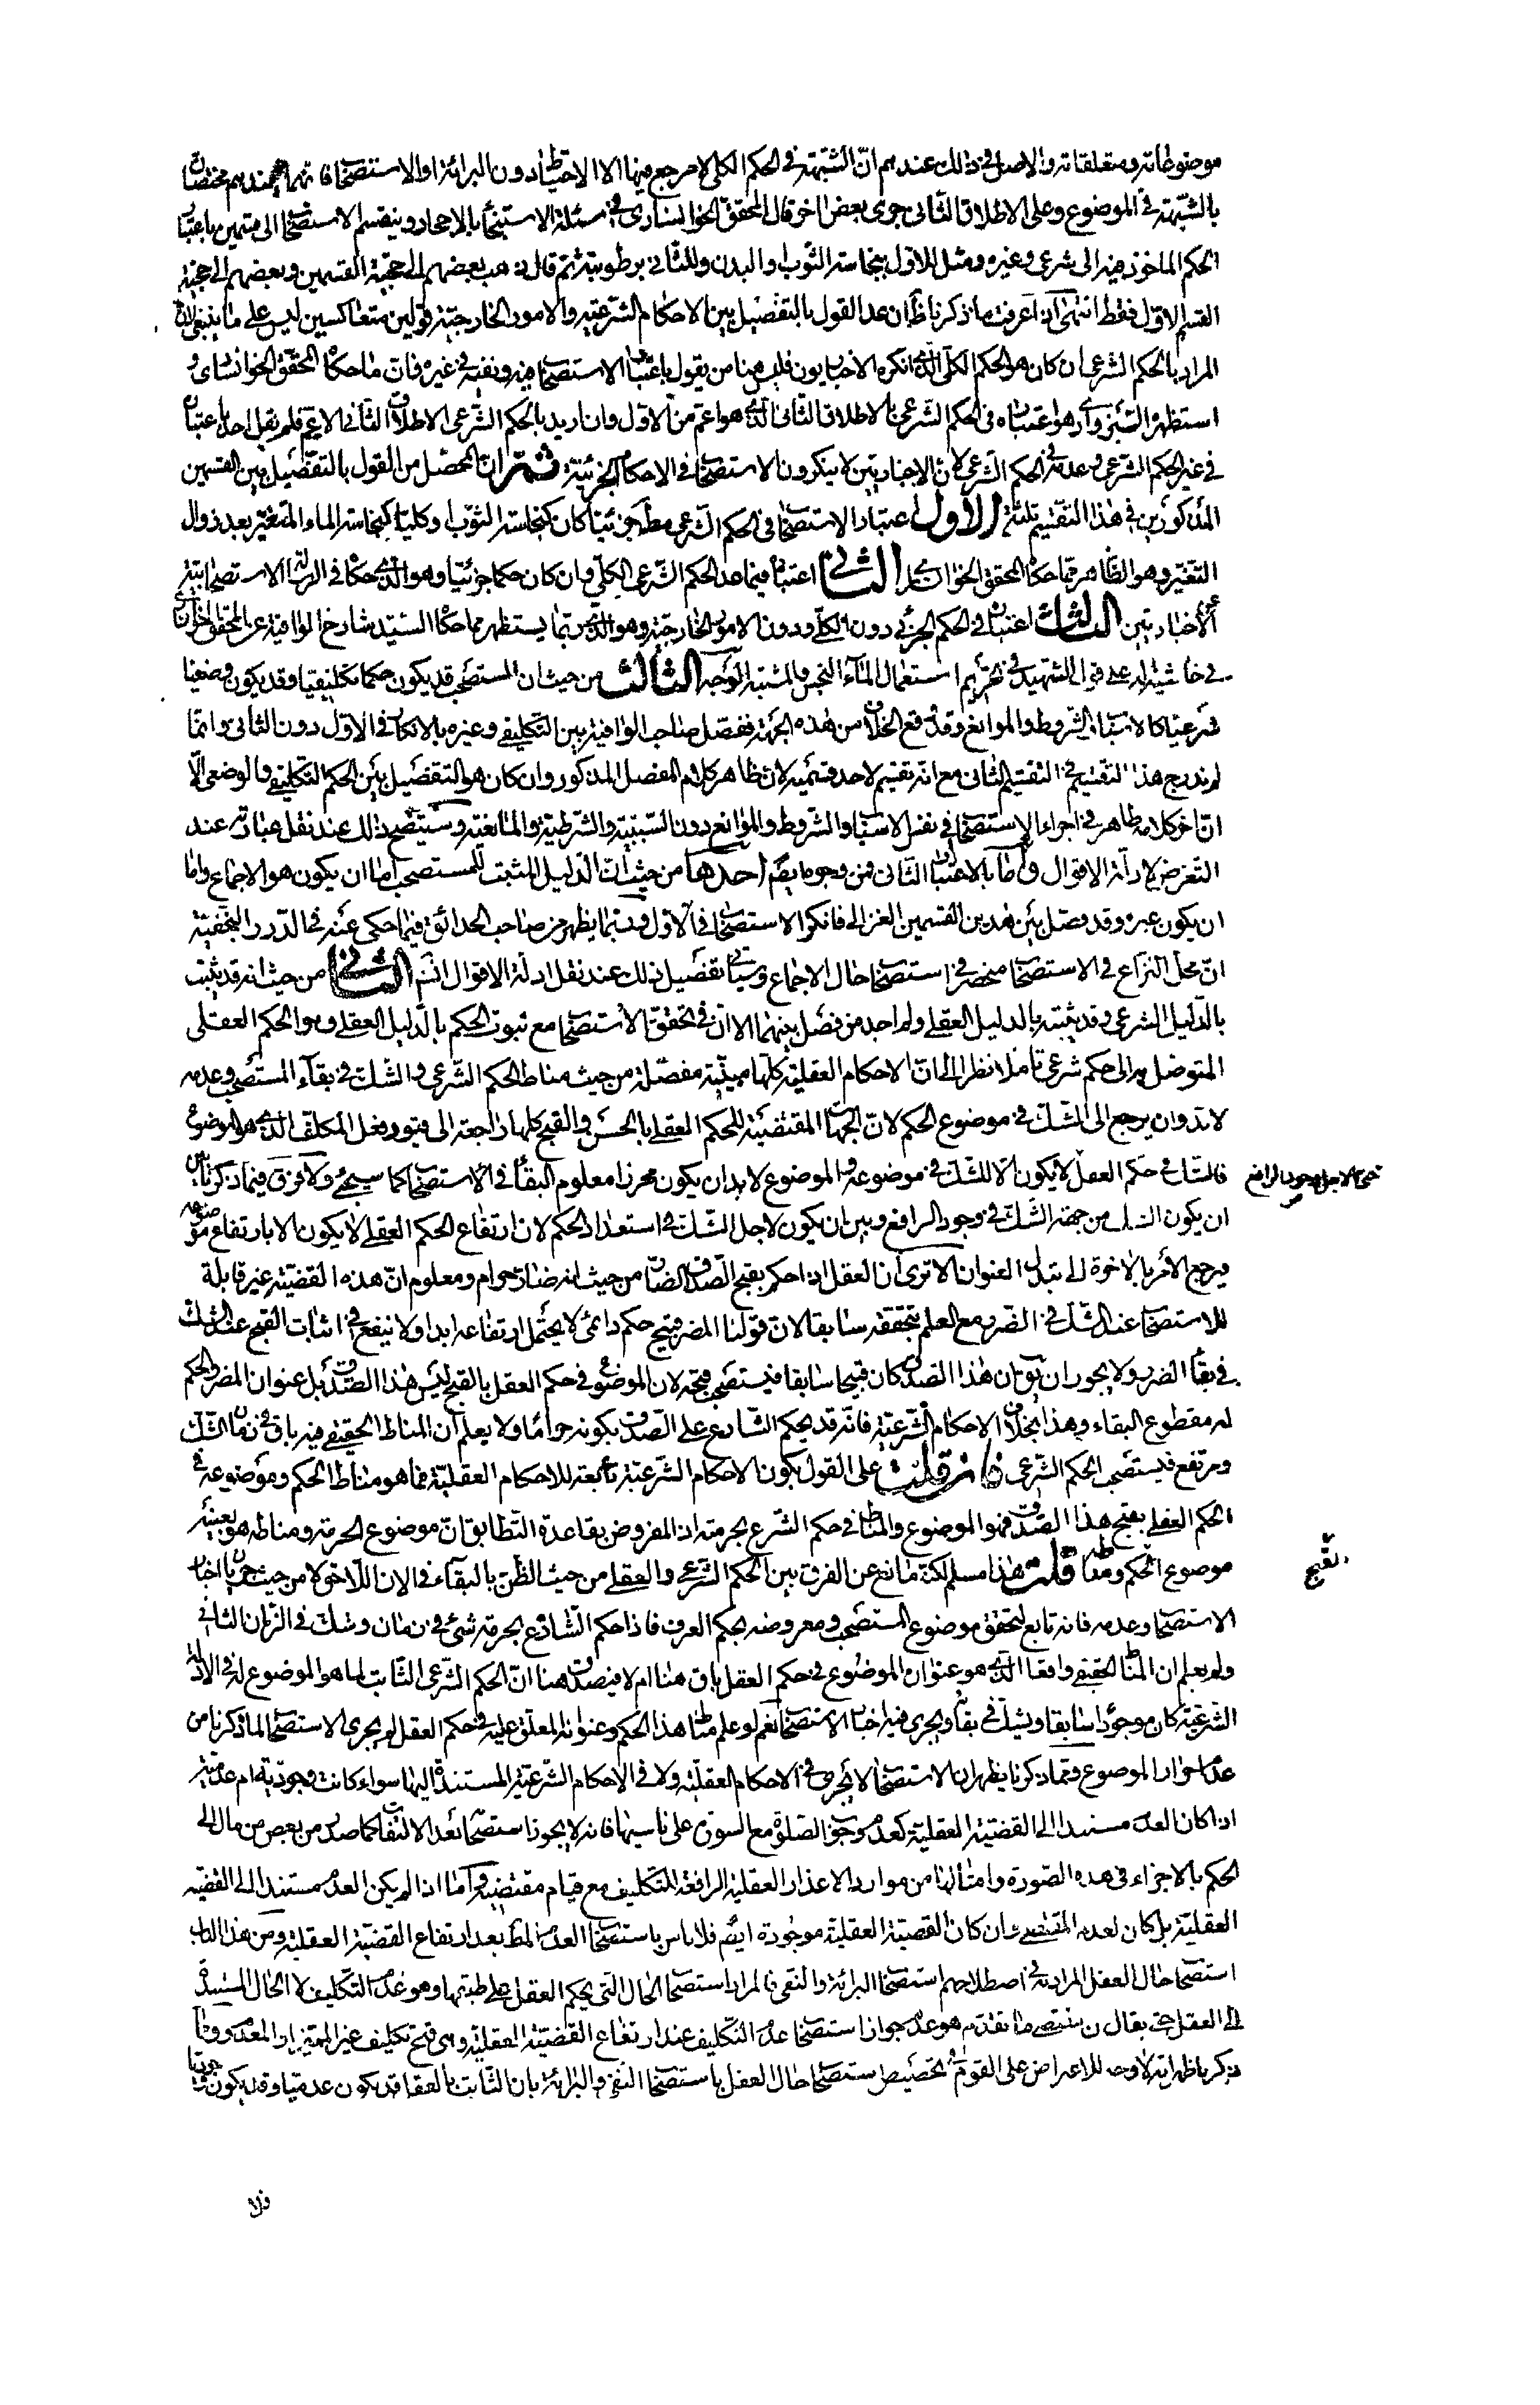 موضوعاته ومتعلقاته والاصل في ذلك عندهم انّ الشبهة في الحكم الكلى لا مرجع فيها الا الاحتياط دون البرائة او الاستصحاب فانهما عندهم مختصان
بالشبهة في الموضوع وعلى الاطلاق الثانى جرى بعض اخر قال المحقق الخوانسارى في مسئلة الاستنجاء بالاحجار وينقسم الاستصحاب الى قسمين باعتبار
الحكم الماخوذ فيه الى شرعى وغيره ومثل للاول بنجاسة الثوب او البدن وللثانى برطوبته ثم قال ذهب بعضهم الى حجية القسمين وبعضهم الى حجية
القسم الاول فقط انتهى اذا عرفت ما ذكرنا ظهر ان عد القول بالتفصيل بين الاحكام الشرعية والامور الخارجية قولين متعاكسين ليس على ما ينبغى لان
المراد بالحكم الشرعى ان كان هو الحكم الكلى الذى انكره الاخباريون فليس هنا من يقول باعتبار الاستصحاب فيه ونفيه في غيره فان ما حكاه المحقق الخوانسارى و
استظهره السبزوارى هو اعتباره في الحكم الشرعى بالاطلاق الثانى الذى هو اعم من الاول وان اريد بالحكم الشرعى الاطلاق الثانى الاعم فلم يقل احد باعتباره
في غير الحكم الشرعى وعدمه في الحكم الشرعى لان الاخباريين لا ينكرون الاستصحاب في الاحكام الجزئية ثم ان المحصل من القول بالتفصيل بين القسمين
المذكورين في هذا التقسيم ثلثة الاول اعتبار الاستصحاب في الحكم الشرعى مط جزئيا كان كنجاسة الثوب او كليا كنجاسة الماء المتغير بعد زوال
التغير وهو الظاهر مما حكاه المحقق الخوانسارى الثانى اعتباره فيما عدا الحكم الشرعى الكلى وان كان حكما جزئيا وهو الذى حكاه في الرسالة الاستصحابية
عن الاخباريين الثالث اعتباره في الحكم الجزئى دون الكلى ودون الامور الخارجية وهو الذى ربما يستظهر مما حكاه السيد شارح الوافية عن المحقق الخوانسارى
في حاشية له على قول الشهيد في تحريم استعمال الماء النجس والمشتبه الوجه الثالث من حيث ان المستصحب قد يكون حكما تكليفيا وقد يكون وضعيا
شرعيا كالاسباب والشروط والموانع وقد وقع الخلاف من هذه الجهة ففصل صاحب الوافية بين التكليفى وغيره بالانكار في الاول دون الثانى وانما
لم ندرج هذا التقسيم في التقسيم الثانى مع انه تقسيم لاحد قسميه لان ظاهر كلام المفصل المذكور وان كان هو التفصيل بين الحكم التكليفى والوضعى الا
ان اخر كلامه ظاهر في اجراء الاستصحاب في نفس الاسباب والشروط والموانع دون السببية والشرطية والمانعية وسيتضح ذلك عند نقل عبارته عند
التعرض لادلة الاقوال واما بالاعتبار الثانى فمن وجوه ايضم احدها من حيث ان الدليل المثبت للمستصحب اما ان يكون هو الاجماع واما
ان يكون غيره وقد فصل بين هذين القسمين الغزالى فانكر الاستصحاب في الاول وربما يظهر من صاحب الحدائق فيما حكى عنه في الدرر النجفية
ان محل النزاع في الاستصحاب منحصر في استصحاب حال الاجماع وسيأتى تفصيل ذلك عند نقل ادلة الاقوال انشم الثانى من حيث انه قد يثبت
بالدليل الشرعى وقد يثبت بالدليل العقلى ولم اجد من فصل بينهما الا ان في تحقق الاستصحاب مع ثبوت الحكم بالدليل العقلى وهو الحكم العقلى
المتوصل به الى حكم شرعى تاملا نظرا الى ان الاحكام العقلية كلها مبينة مفصلة من حيث مناط الحكم الشرعى والشك في بقاء المستصحب وعدمه
لا بد وان يرجع الى الشك في موضوع الحكم لان الجهات المقتضية للحكم العقلى بالحسن والقبح كلها راجعة الى قيود فعل المكلف الذى هو الموضوع
فالشك في حكم العقل لا يكون الا للشك في موضوعه والموضوع لا بد ان يكون محرزا معلوم البقاء في الاستصحاب كما سيجئ ولا فرق فيما ذكرنا بين
حتى لاجل وجود الرافع
ان يكون الشك من جهة الشك في وجود الرافع وبين ان يكون لاجل الشك في استعداد الحكم لان ارتفاع الحكم العقلى لا يكون الا بارتفاع موضوعه
فيرجع الامر بالاخرة الى تبدل العنوان الا ترى ان العقل اذا حكم بقبح الصدق الضار من حيث انه ضار حرام ومعلوم ان هذه القضية غير قابلة
للاستصحاب عند الشك في الضرر مع العلم بتحققه سابقا لان قولنا المضر قبيح حكم دائمى لا يحتمل ارتفاعه ابدا ولا ينفع في اثبات القبح عند الشك
في بقاء الضرر ولا يجوز ان يق ان هذا الصدق كان قبيحا سابقا فيستصحب قبحه لان الموضوع في حكم العقل بالقبح ليس هذا الصدق بل عنوان المضر والحكم
له مقطوع البقاء وهذا بخلاف الاحكام الشرعية فانه قد يحكم الشارع على الصدق بكونه حراما ولا يعلم ان المناط الحقيقى فيه باق في زمان الشك
او مرتفع فيستصحب الحكم الشرعى فان قلت على القول بكون الاحكام الشرعية تابعة للاحكام العقلية فما هو مناط الحكم وموضوعه في
الحكم العقلى بقبح هذا الصدق فهو الموضوع والمناط في حكم الشرع بحرمته اذ المفروض بقاعدة التطابق ان موضوع الحرمة ومناطه هو بعينه
موضوع الحكم ومناطه قلت هذا مسلم لكنه مانع عن الفرق بين الحكم الشرعى والعقلى من حيث الظن بالبقاء في الان اللاحق لا من حيث جريان اخبار
القبح
الاستصحاب وعدمه فانه تابع لتحقق موضوع المستصحب ومعروضه بحكم العرف فاذا حكم الشارع بحرمة شئ في زمان وشك في الزمان الثانى
ولم يعلم ان المناط الحقيقى واقعا الذى هو عنوان الموضوع في حكم العقل باق هنا ام لا فيصدق هنا ان الحكم الشرعى الثابت لما هو الموضوع له في الادلة
الشرعية كان موجودا سابقا ويشك في بقائه ويجرى فيه اخبار الاستصحاب نعم لو علم مناط هذا الحكم وعنوانه المعلق عليه في حكم العقل لم يجر الاستصحاب لما ذكرنا من
عدم احراز الموضوع ومما ذكرنا يظهر ان الاستصحاب لا يجرى في الاحكام العقلية ولا في الاحكام الشرعية المستندة اليها سواء كانت وجودية ام عدمية
اذا كان العدم مستندا الى القضية العقلية كعدم وجوب الصلوة مع السورة على ناسيها فانه لا يجوز استصحابه بعد الالتفات كما صدر من بعض من مال الى
الحكم بالاجزاء في هذه الصورة وامثالها من موارد الاعذار العقلية الرافعة للتكليف مع قيام مقتضيه واما اذا لم يكن العدم مستندا الى القضية
العقلية بل كان لعدم المقتضى وان كان القضية العقلية موجودة ايضم فلا باس باستصحاب العدم المط بعد ارتفاع القضية العقلية ومن هذا الباب
استصحاب حال العقل المراد به في اصطلاحهم استصحاب البرائة والنفى فالمراد استصحاب الحال التى يحكم العقل على طبقها وهو عدم التكليف لا الحال المستندة
الى العقل حتى يقال ان مقتضى ما تقدم هو عدم جواز استصحاب عدم التكليف عند ارتفاع القضية العقلية وهى قبح تكليف غير المميز او المعدوم ومما
ذكرنا ظهر انه لا وجه للاعتراض على القوم في تخصيص استصحاب حال العقل باستصحاب النفى والبرائة بان الثابت بالعقل قد يكون عدميا وقد يكون وجوديا
فلا